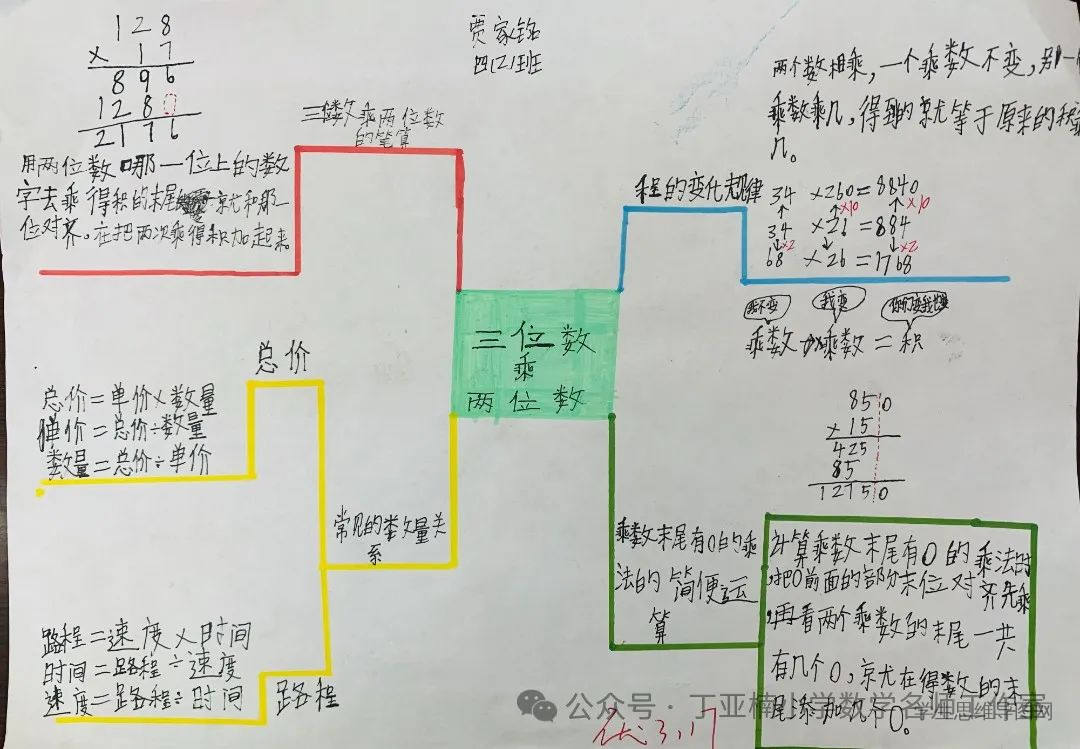 贾家铭
四(2)班
128
× 17
896
128
2176
三位数乘两位数
的笔算
用两位数哪一位上的数
字去乘得积的末尾就和那一
位对齐。在把两次乘得积加起来。
两个数相乘，一个乘数不变，另一
乘数乘几，得到的就等于原来的积乘
几。
积的变化规律
34 ×260=8840
×10 ×10
34 ×26=884
×2 ×2
68 ×26=1768
我不变 我变 你们变我也变
乘数×乘数=积
三位数
乘
两位数
总价
总价=单价×数量
单价=总价÷数量
数量=总价÷单价
常见的数量关
系
路程=速度×时间
时间=路程÷速度
速度=路程÷时间
路程
850
×15
425
85
12750
乘数末尾有0的乘
法的简便运
算
计算乘数末尾有0的乘法时
把0前面的部分末位对齐先乘
再看两个乘数的末尾一共
有几个0，就在得数的末
尾添加几个0。
优3.17
公众号·丁亚楠小学数学名师工作室
学生思维导图网